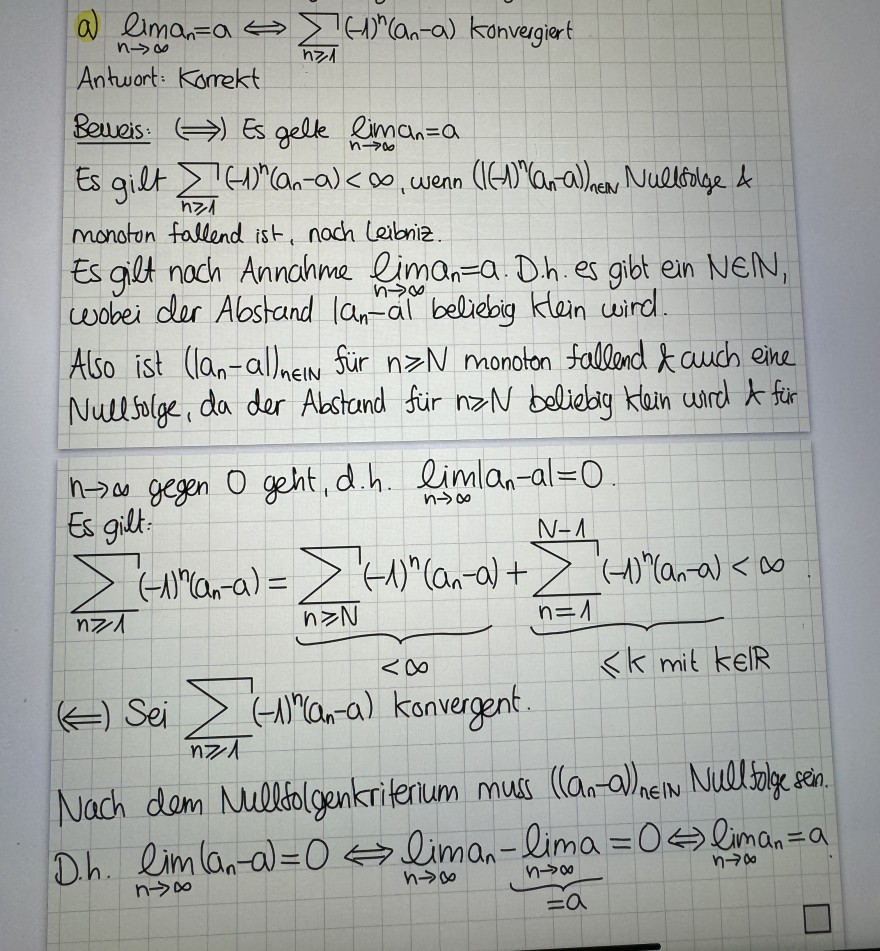 a) lim_{n→∞} aₙ = a ⟺ ∑_{n≥1} (-1)ⁿ(aₙ-a) konvergiert
Antwort: Korrekt
Beweis: (⟹) Es gelte lim_{n→∞} aₙ = a
Es gilt ∑_{n≥1} (-1)ⁿ(aₙ-a) < ∞, wenn (|(-1)ⁿ(aₙ-a))_{n∈ℕ} Nullfolge &
monoton fallend ist, nach Leibniz.
Es gilt nach Annahme lim_{n→∞} aₙ = a. D.h. es gibt ein N∈ℕ,
wobei der Abstand |aₙ-a| beliebig klein wird.
Also ist (|aₙ-a|)_{n∈ℕ} für n≥N monoton fallend & auch eine
Nullfolge, da der Abstand für n≥N beliebig klein wird & für
n→∞ gegen 0 geht, d.h. lim_{n→∞} |aₙ-a| = 0.
Es gilt:
∑_{n≥1} (-1)ⁿ(aₙ-a) = ∑_{n≥N} (-1)ⁿ(aₙ-a) + ∑_{n=1}^{N-1} (-1)ⁿ(aₙ-a) < ∞.
<∞ ≤k mit k∈ℝ
(⟸) Sei ∑_{n≥1} (-1)ⁿ(aₙ-a) konvergent.
Nach dem Nullfolgenkriterium muss ((aₙ-a))_{n∈ℕ} Nullfolge sein.
D.h. lim_{n→∞} (aₙ-a) = 0 ⟺ lim_{n→∞} aₙ - lim_{n→∞} a = 0 ⟺ lim_{n→∞} aₙ = a
=a
□